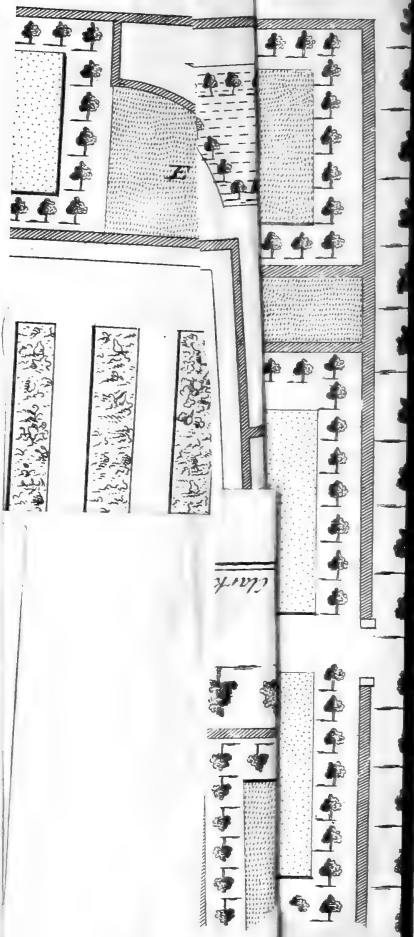 E
Clark